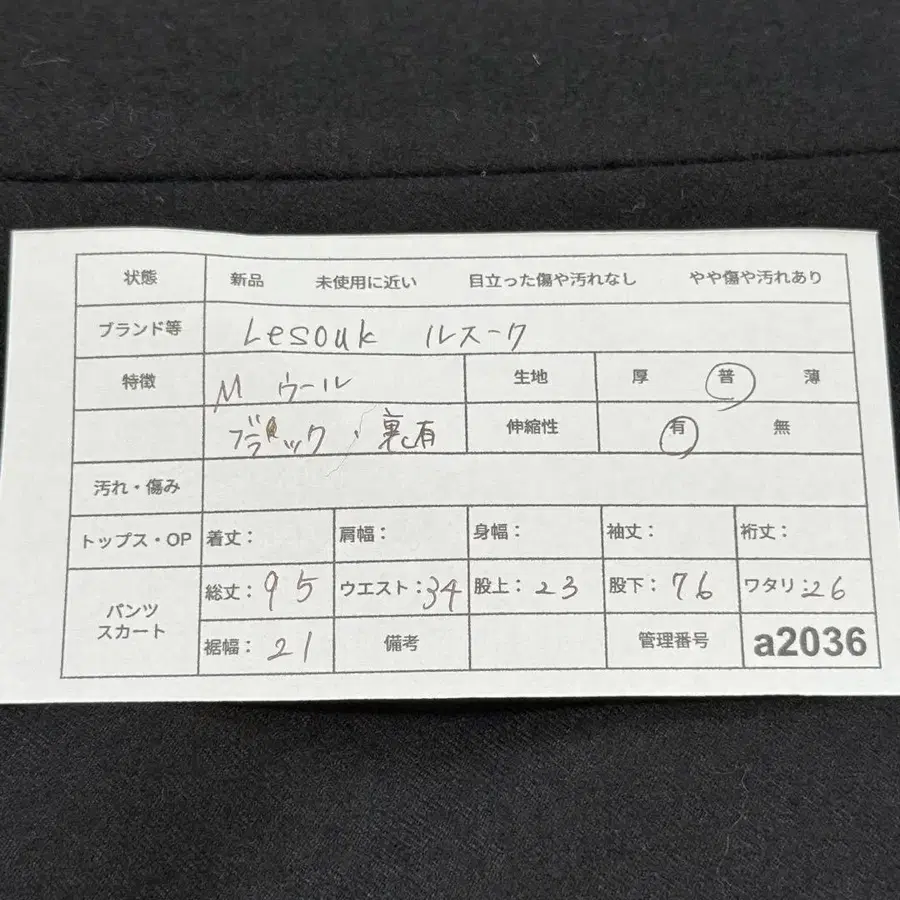 状態 新品 未使用に近い 目立った傷や汚れなし やや傷や汚れあり
ブランド等 Lesouk ルスーク
特徴 M ウール 生地 厚 普 薄
ブラック、裏有 伸縮性 有 無
汚れ・傷み
トップス・OP 着丈: 肩幅: 身幅: 袖丈: 裄丈:
パンツ スカート 総丈:95 ウエスト:34 股上:23 股下:76 ワタリ:26
裾幅:21 備考 管理番号 a2036